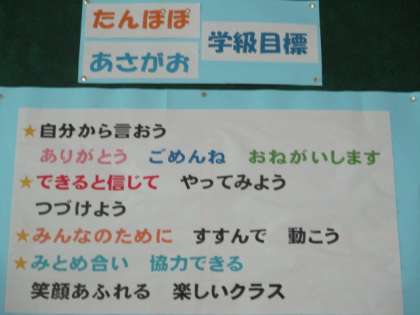 たんぽぽ
あさがお
学級目標
★自分から言おう
ありがとう ごめんね おねがいします
★できると信じて やってみよう
つづけよう
★みんなのために すすんで 動こう
★みとめ合い 協力できる
笑顔あふれる 楽しいクラス